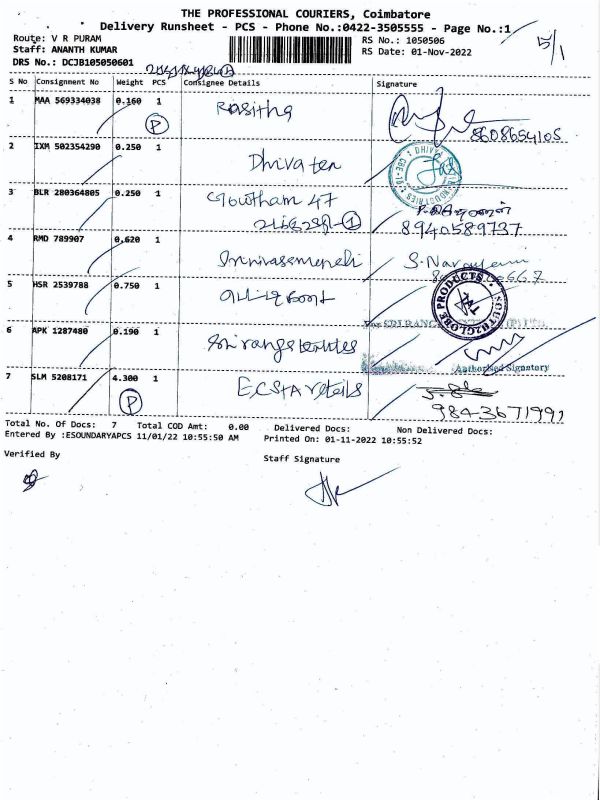 THE PROFESSIONAL COURIERS, Coimbatore
Delivery Runsheet - PCS - Phone No.:0422-3505555 - Page No.:1
5/1
Route: V R PURAM
RS No.: 1050506
Staff: ANANTH KUMAR
RS Date: 01-Nov-2022
DRS No.: DCJB105050601
S No Consignment No Weight PCS Consignee Details Signature
1 MAA 569334038 0.160 1 Rasitha
P
8608654105
2 IXM 502354290 0.250 1 Dhivaten
DHIVA
INDUSTRIES
3 BLR 280364805 0.250 1 Gowtham 47
1
8940589737
4 RMD 789907 0.620 1
S. Narayani
5 HSR 2539788 0.750 1
SOUTH2GLOBE PRODUCTS
For SRI RANGA
6 APK 1287480 0.190 1 Sri ranga textiles
Authorised Signatory
7 SLM 5208171 4.300 1 ECSTA retails
P
984-3671991
Total No. Of Docs: 7 Total COD Amt: 0.00 Delivered Docs: Non Delivered Docs:
Entered By :ESOUNDARYAPCS 11/01/22 10:55:50 AM Printed On: 01-11-2022 10:55:52
Verified By
Staff Signature